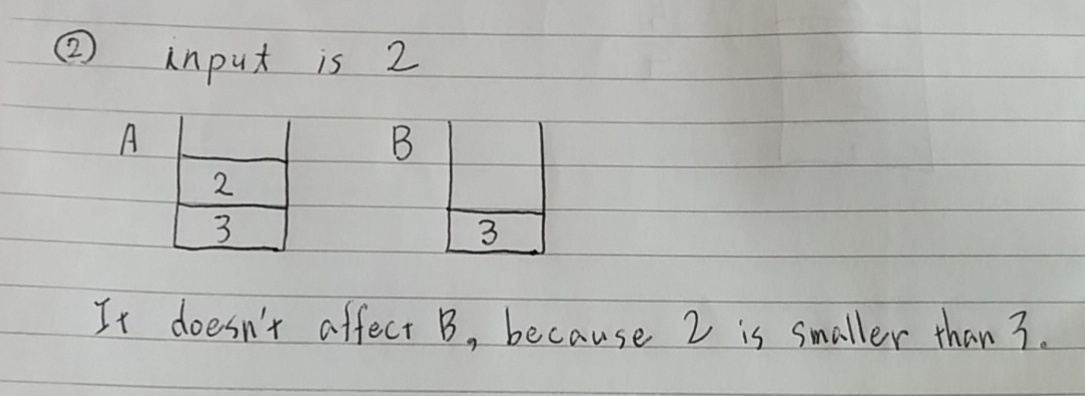 ② input is 2
A B
2
3 3
It doesn't affect B, because 2 is smaller than 3.